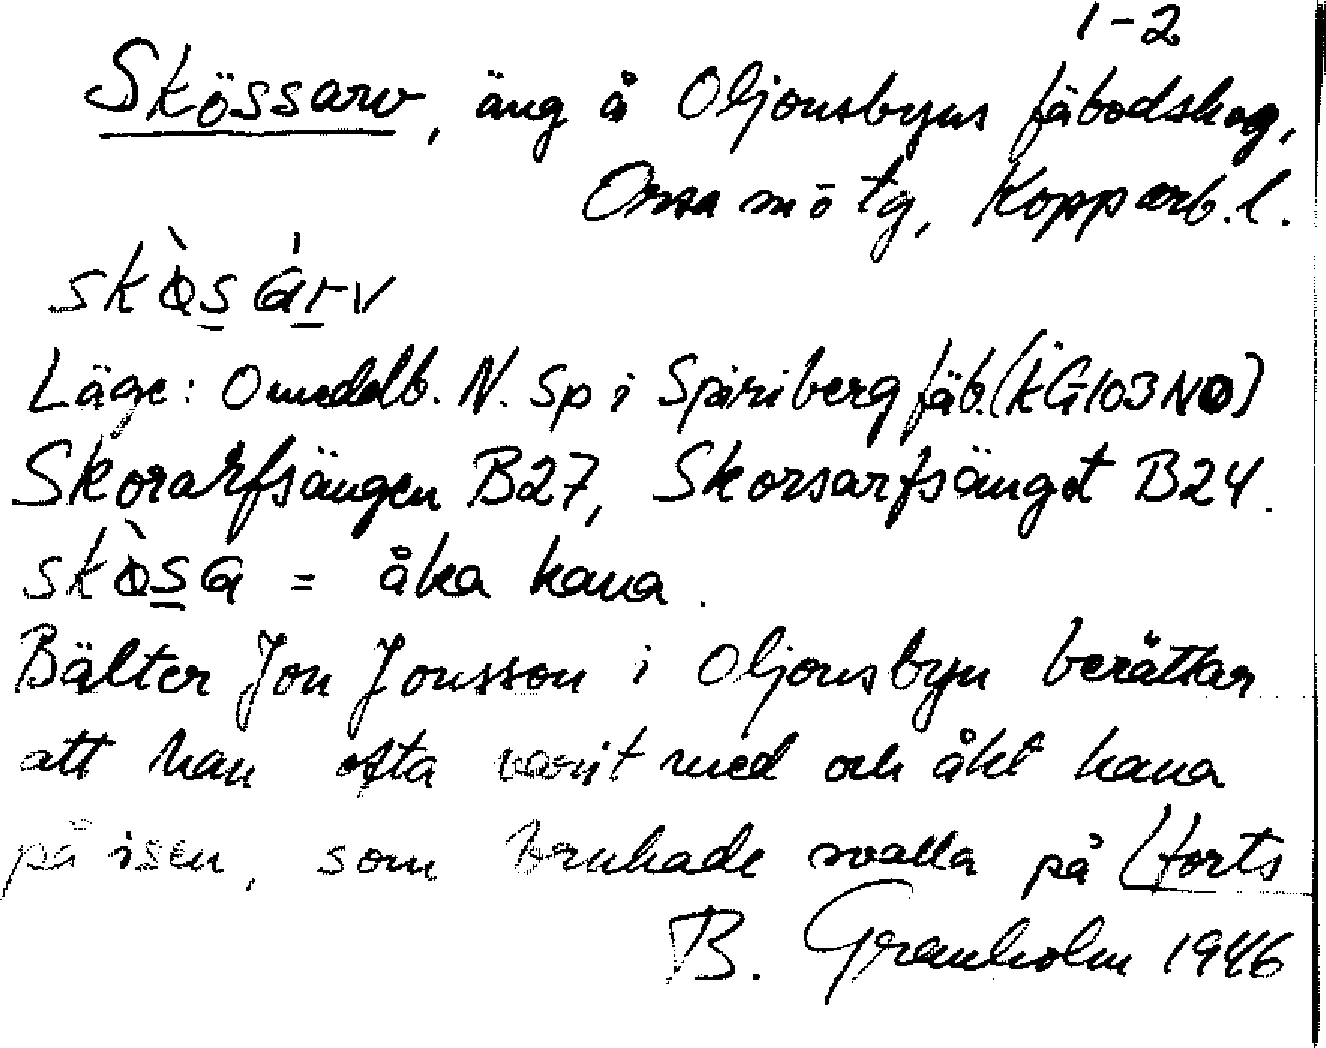 1-2
Skössarv, äng å Oljonsbyns fäbodskog,
Orsa sn o tg, Kopparb. l.
skòs árv
Läge: Omedelb. N. Sp i Spåriberg fäb. (KG103NO)
Skorarfsängen B27, Skorsarfsänget B24.
skòsa = åka kana.
Bälter Jon Jonsson i Oljonsbyn berättar
att han ofta varit med och åkt kana
på isen, som brukade svalla på (forts
B. Granholm 1946